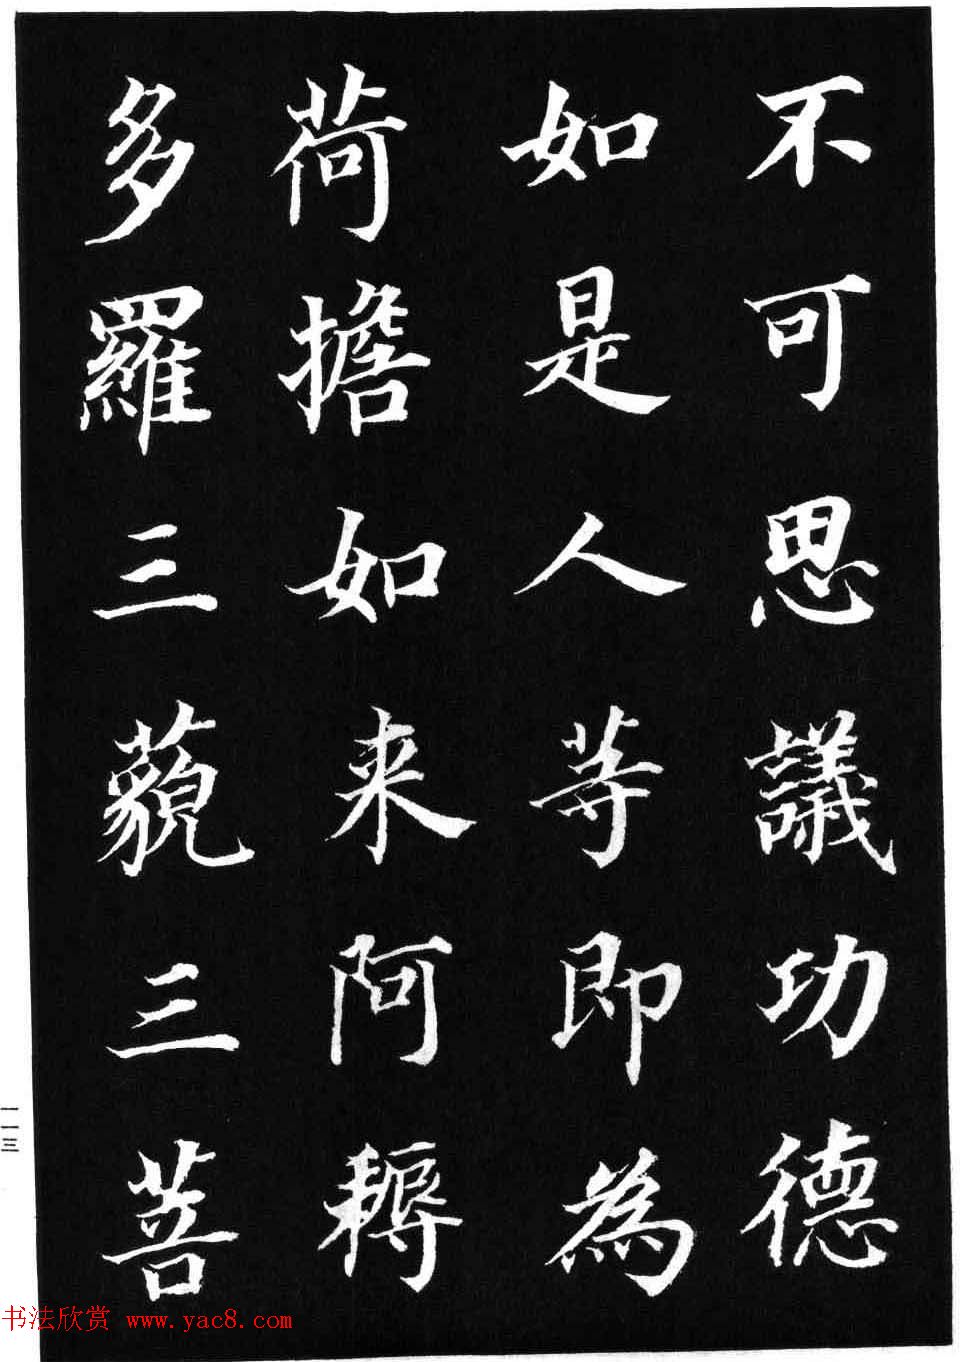 不可思議功德
如是人等即為
荷擔如来阿耨
多羅三藐三菩
一一三
书法欣赏 www.yac8.com